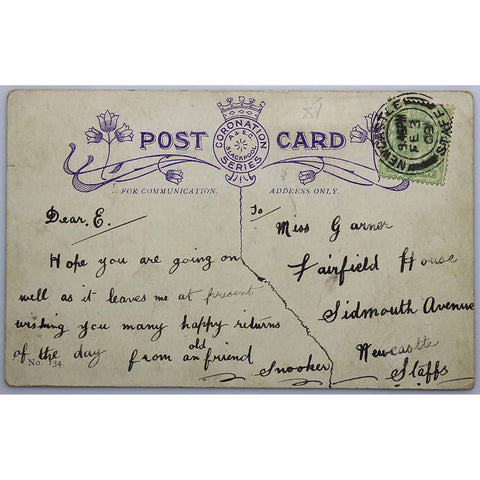 POST CARD
CORONATION
A & E.C.
BLACKPOOL
SERIES
FOR COMMUNICATION.
ADDRESS ONLY.
NEWCASTLE
STAFFS
FE 3
09
Dear E.
Hope you are going on
well as it leaves me at present
wishing you many happy returns
of the day from an old friend
Snooker
No. 134
To
Miss Garner
Fairfield House
Sidmouth Avenue
Newcastle
Staffs